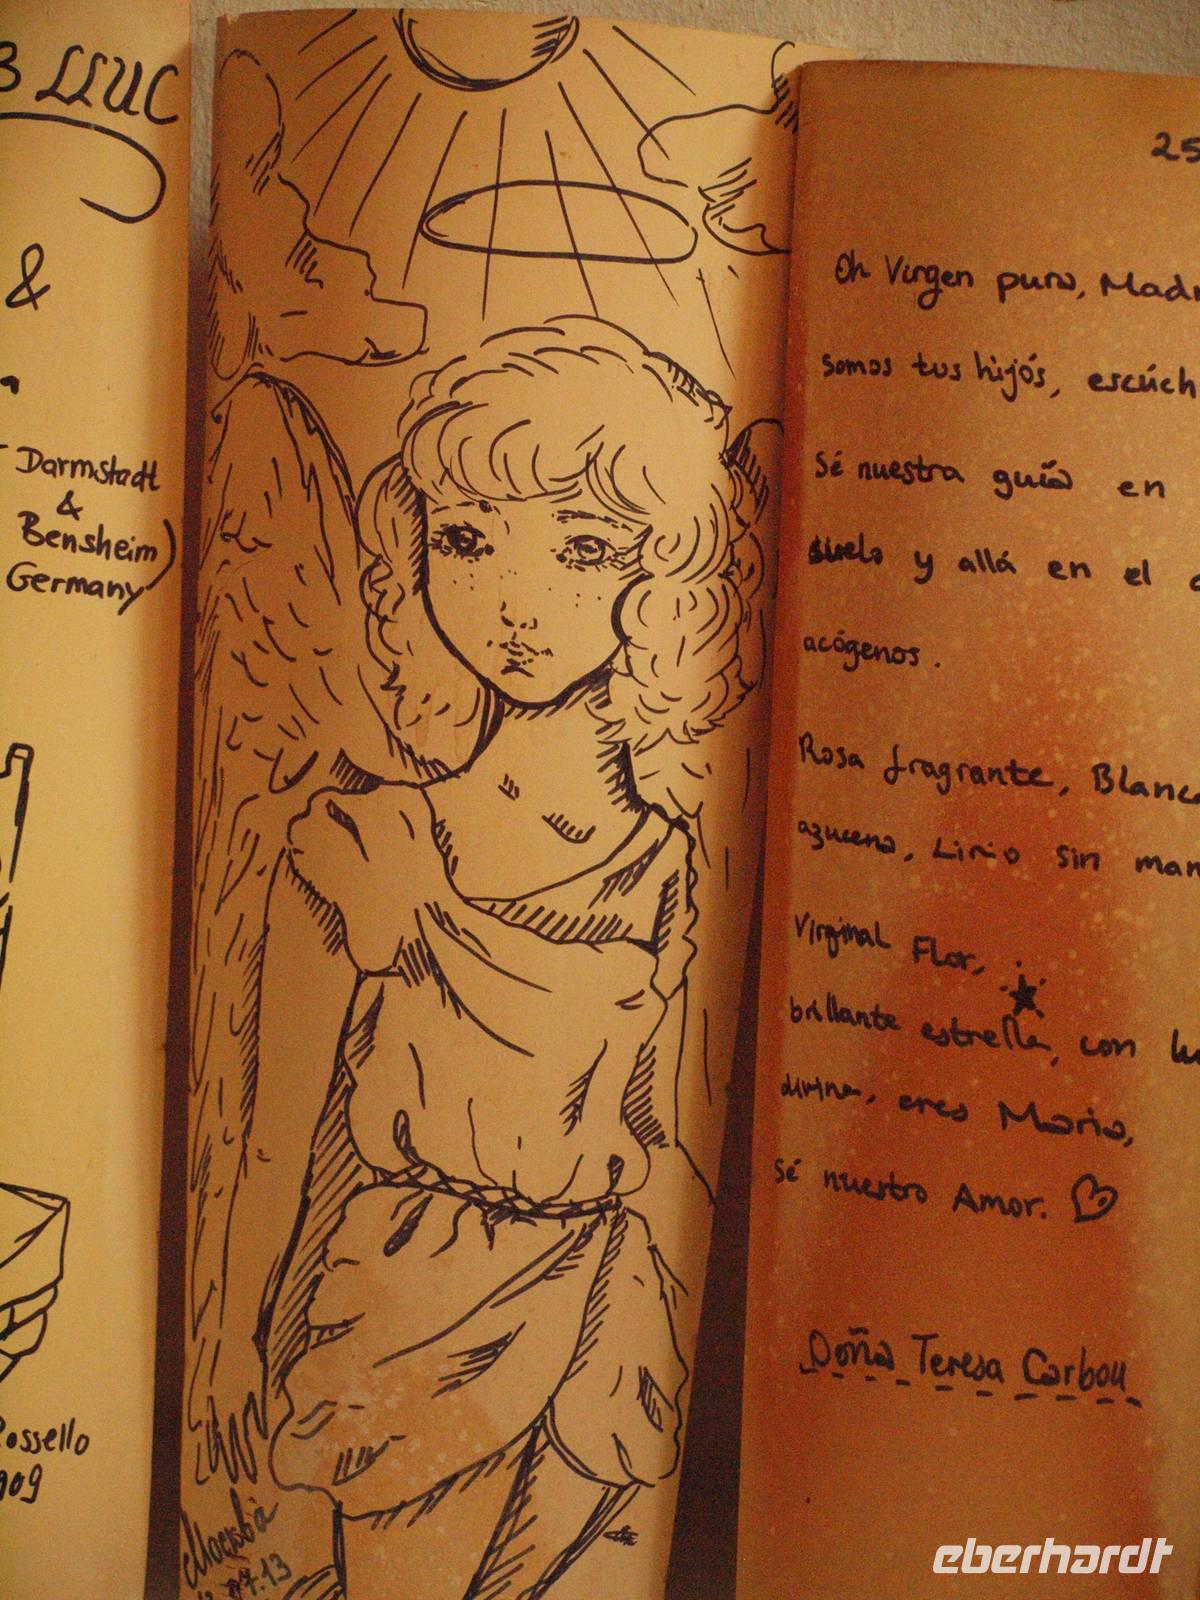 3 LLUC
&
Darmstadt
&
Bensheim)
Germany
Rossello
909
Москва
07.13
25
Oh Virgen pura, Mad
somos tus hijós, escúch
Sé nuestra guía en
suelo y allá en el c
acógenos.
Rosa fragrante, Blanca
azucena, Lirio sin man
Virginal Flor,
brillante estrella, con lu
divina, eres Maria,
sé nuestro Amor.
Doña Teresa Carbou
eberhardt